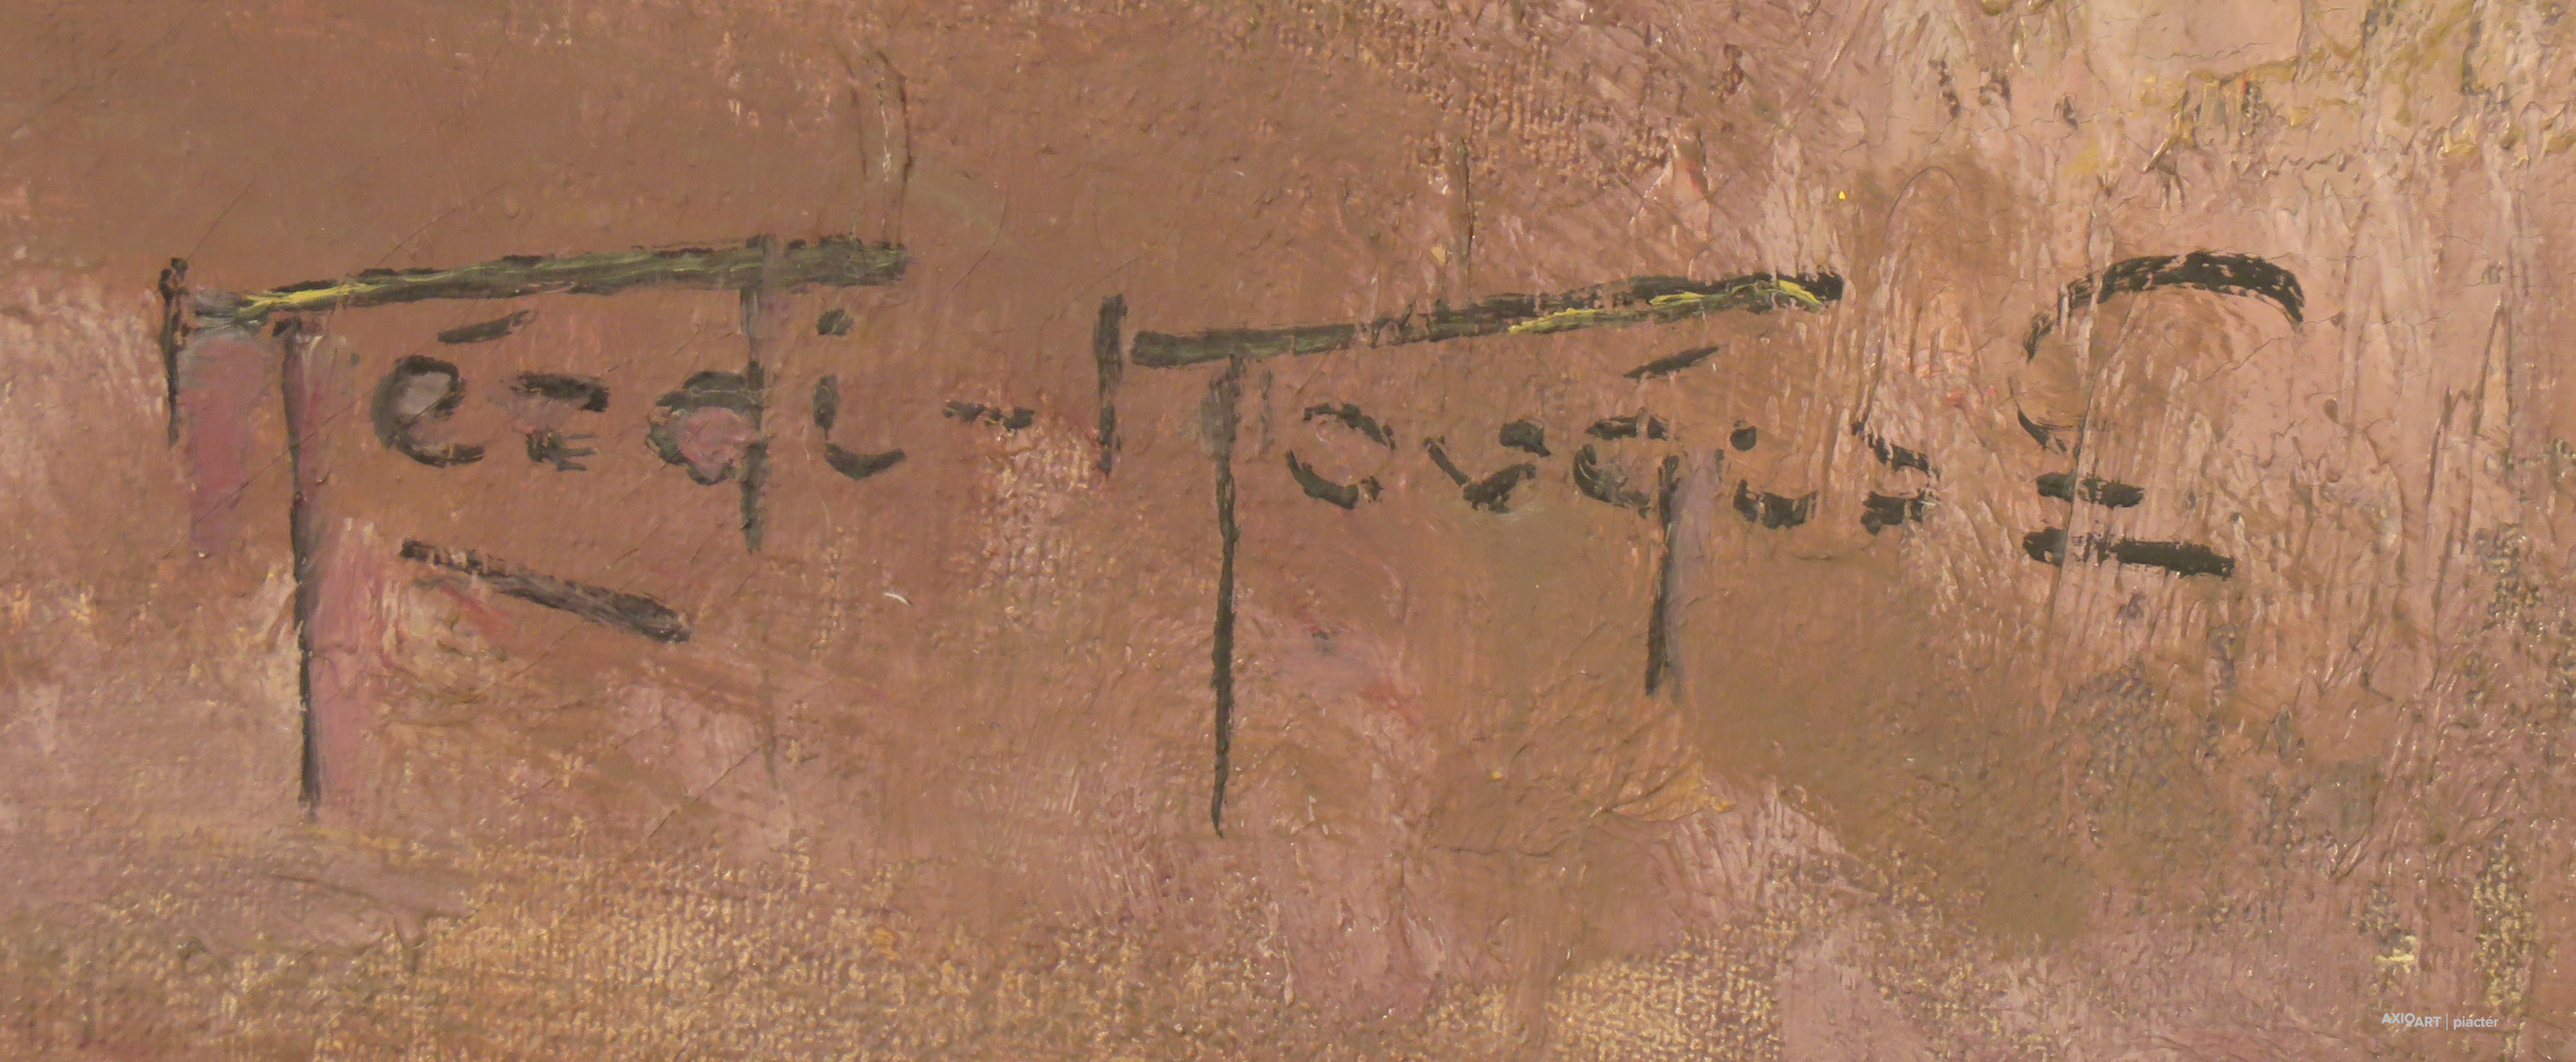 Kézdi-Kovács
AXIOART | piactér